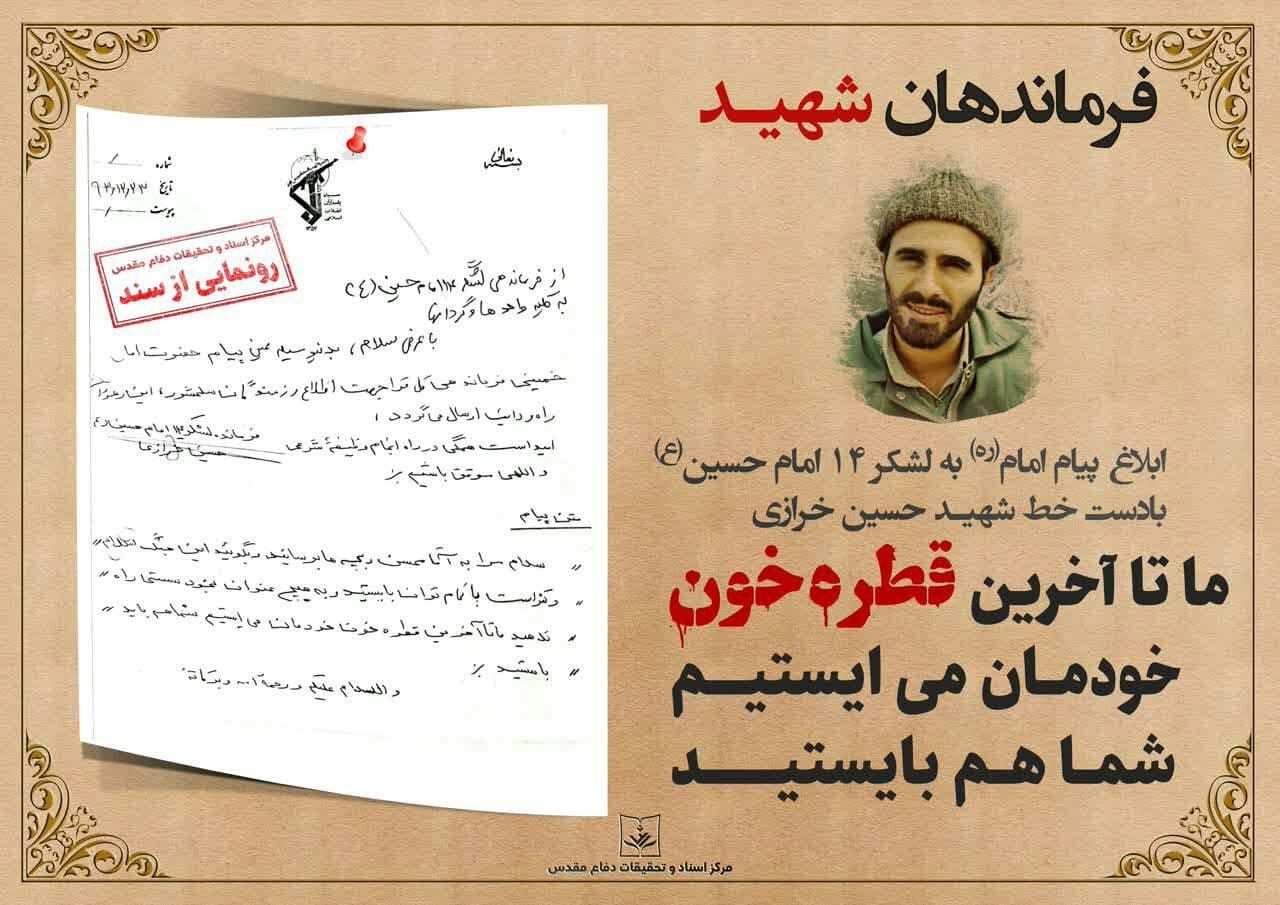 فرماندهان شهید
ابلاغ پیام امام(ره) به لشکر ۱۴ امام حسین(ع)
بادست خط شهید حسین خرازی
ما تا آخرین قطره خون
خودمان می ایستیم
شما هم بایستید
بسمه تعالی
شماره
تاریخ ۶۳،۱۲،۲۳
پیوست
سپاه
پاسداران
انقلاب
اسلامی
مرکز اسناد و تحقیقات دفاع مقدس
رونمایی از سند
از فرماندهی لشگر ۱۴ امام حسین (ع)
به کلیه واحدها و گردانها
با عرض سلام، بدینوسیله عین پیام حضرت امام
خمینی فرماندهی کل قوا جهت اطلاع رزمندگان
راه و ارسال می گردد
امید است همگی در راه انجام وظیفه شرعی
و اللهی موفق باشیم
فرمانده لشکر ۱۴ امام حسین (ع)
حسین خرازی
متن پیام
" سلام مرا به بچه ها برسانید و بگوئید این جنگ
" و با تمام توان بایستید و به هیچ عنوان بخود سستی راه "
" ندهید ما تا آخرین قطره خون خودمان می ایستیم شما هم باید "
" بایستید
والسلام علیکم و رحمة الله و برکاته
مرکز اسناد و تحقیقات دفاع مقدس